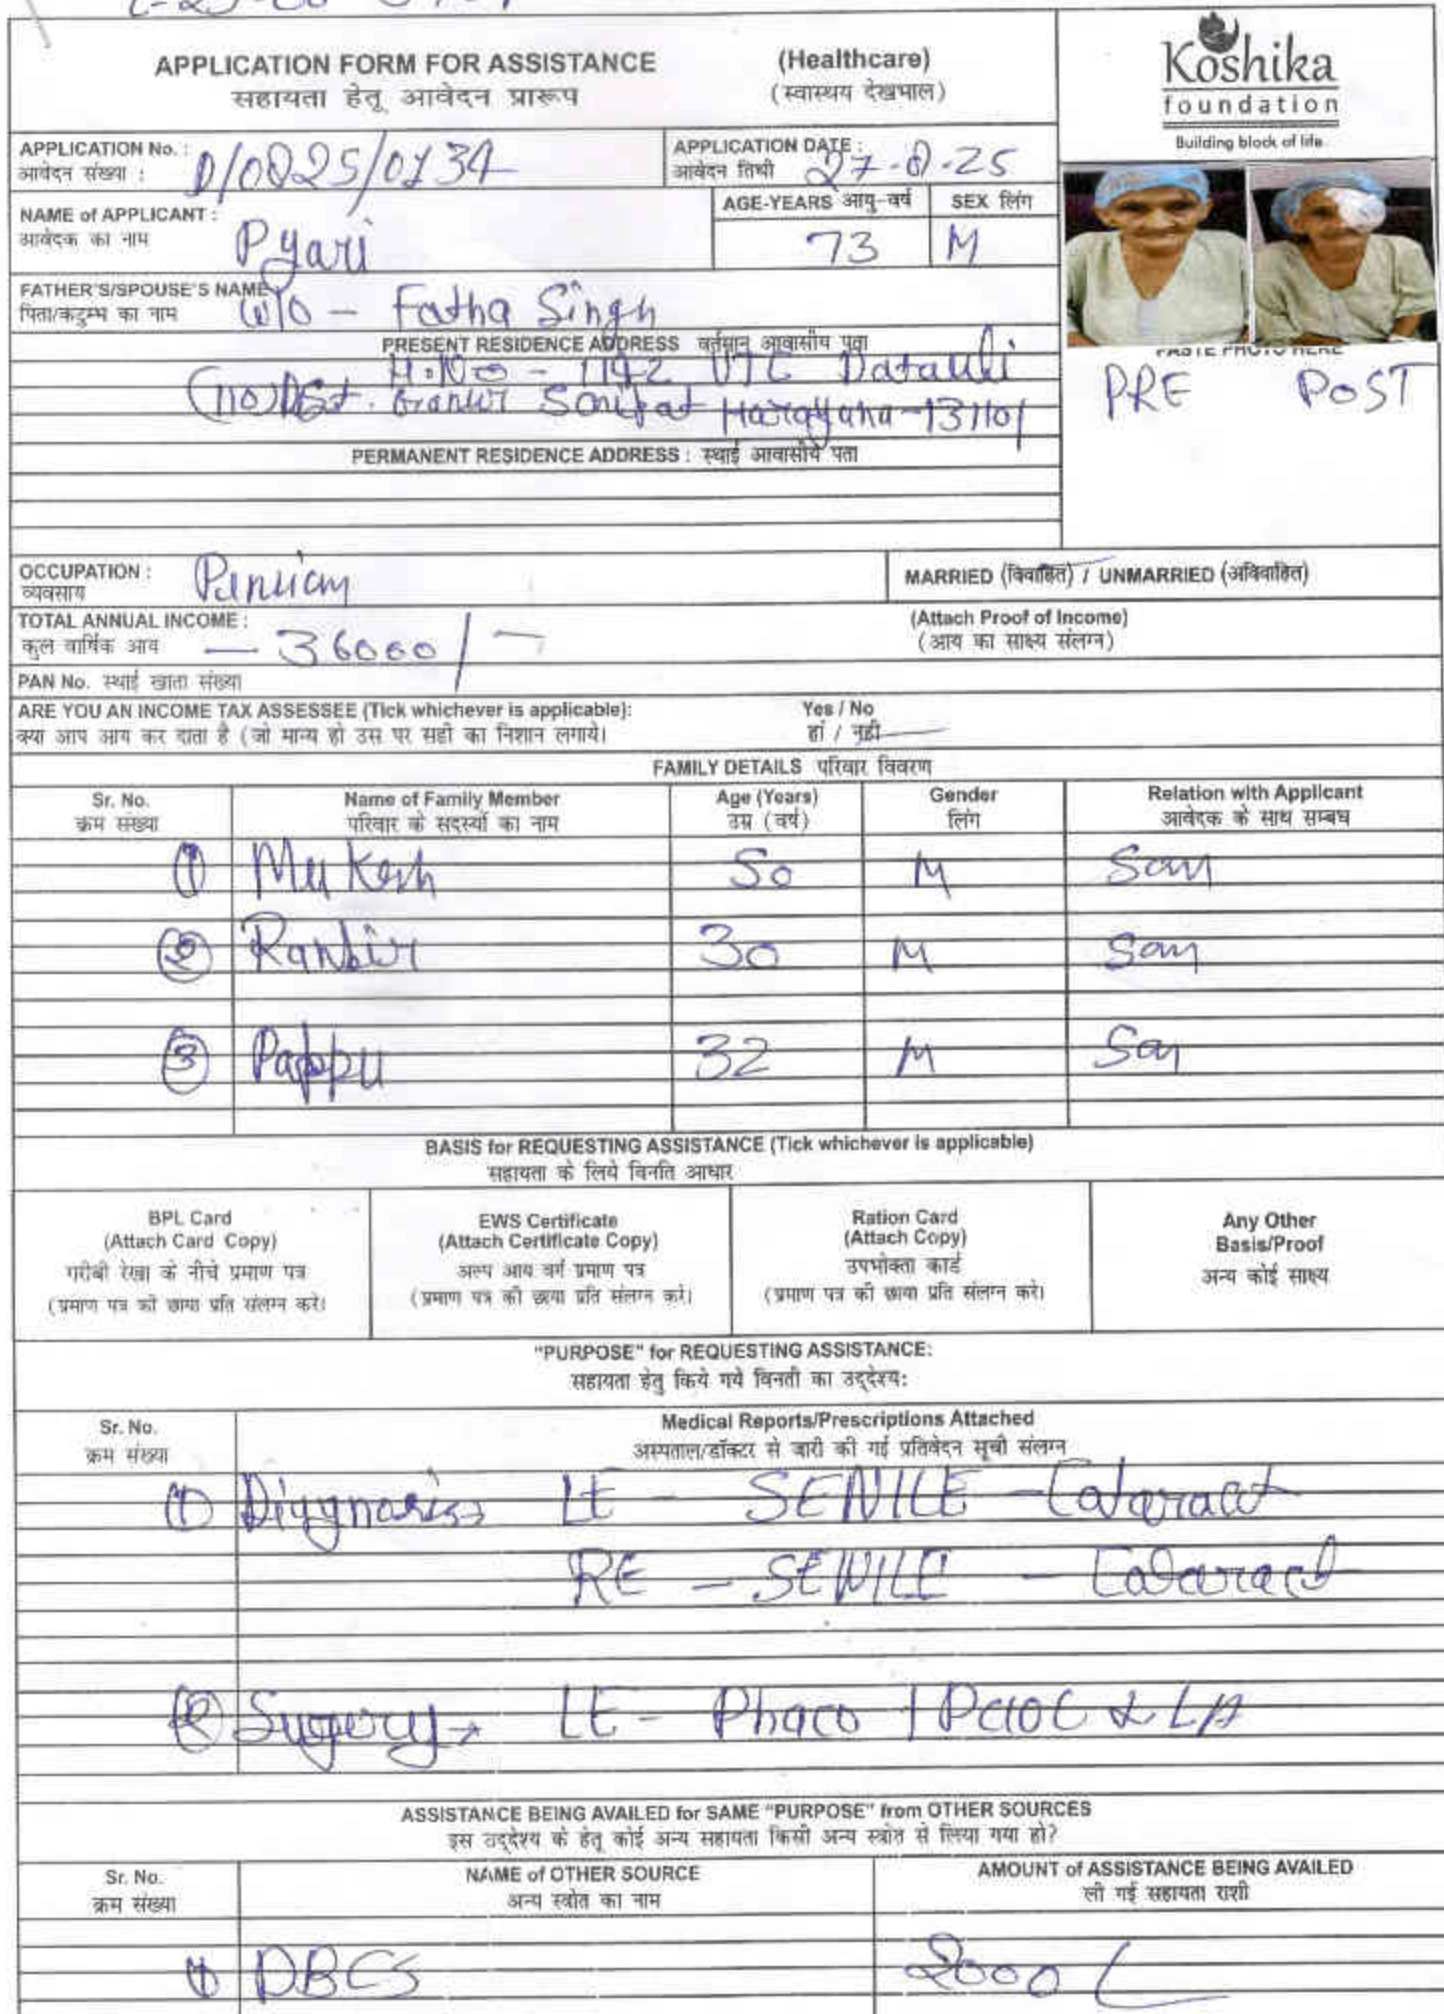 APPLICATION FORM FOR ASSISTANCE (Healthcare)
सहायता हेतू आवेदन प्रारूप (स्वास्थय देखभाल)
Koshika
foundation
Building block of life
APPLICATION No. : D/0825/0134
आवेदन संख्या :
APPLICATION DATE : 27-8-25
आवेदन तिथी
NAME of APPLICANT : Pyari
आवेदक का नाम
AGE-YEARS आयु-वर्ष 73
SEX लिंग M
FATHER'S/SPOUSE'S NAME W/O - Fatha Singh
पिता/कटुम्ब का नाम
PRESENT RESIDENCE ADDRESS वर्तमान आवासीय पता
H.No - 1142 VTC Datauli
(110) Dist. Sonipat Harayana-131101
PASTE PHOTO HERE
PRE POST
PERMANENT RESIDENCE ADDRESS : स्थाई आवासीय पता
OCCUPATION :
व्यवसाय
MARRIED (विवाहित) / UNMARRIED (अविवाहित)
TOTAL ANNUAL INCOME : - 36000/-
कुल वार्षिक आय
(Attach Proof of Income)
(आय का साक्ष्य संलग्न)
PAN No. स्थाई खाता संख्या
ARE YOU AN INCOME TAX ASSESSEE (Tick whichever is applicable): Yes / No
क्या आप आय कर दाता है (जो मान्य हो उस पर सही का निशान लगाये। हां / नही
FAMILY DETAILS परिवार विवरण
Sr. No. Name of Family Member Age (Years) Gender Relation with Applicant
क्रम संख्या परिवार के सदस्यों का नाम उम्र (वर्ष) लिंग आवेदक के साथ सम्बध
1 Mukesh 50 M Son
2 Ranbir 30 M Son
3 Pappu 32 M Son
BASIS for REQUESTING ASSISTANCE (Tick whichever is applicable)
सहायता के लिये विनति आधार
BPL Card
(Attach Card Copy)
गरीबी रेखा के नीचे प्रमाण पत्र
(प्रमाण पत्र की छाया प्रति संलग्न करे।
EWS Certificate
(Attach Certificate Copy)
अल्प आय वर्ग प्रमाण पत्र
(प्रमाण पत्र की छाया प्रति संलग्न करे।
Ration Card
(Attach Copy)
उपभोक्ता कार्ड
(प्रमाण पत्र की छाया प्रति संलग्न करे।
Any Other
Basis/Proof
अन्य कोई साक्ष्य
"PURPOSE" for REQUESTING ASSISTANCE:
सहायता हेतु किये गये विनती का उद्देश्य:
Sr. No. Medical Reports/Prescriptions Attached
क्रम संख्या अस्पताल/डॉक्टर से जारी की गई प्रतिवेदन सूची संलग्न
1 Diggnosis LE - SENILE - Cataract
RE - SENILE - Cataract
2 Sugery → LE - Phaco + PCIOL & LA
ASSISTANCE BEING AVAILED for SAME "PURPOSE" from OTHER SOURCES
इस उद्देश्य के हेतू कोई अन्य सहायता किसी अन्य स्त्रोत से लिया गया हो?
Sr. No. NAME of OTHER SOURCE AMOUNT of ASSISTANCE BEING AVAILED
क्रम संख्या अन्य स्त्रोत का नाम ली गई सहायता राशी
1 DBCS 2000/-